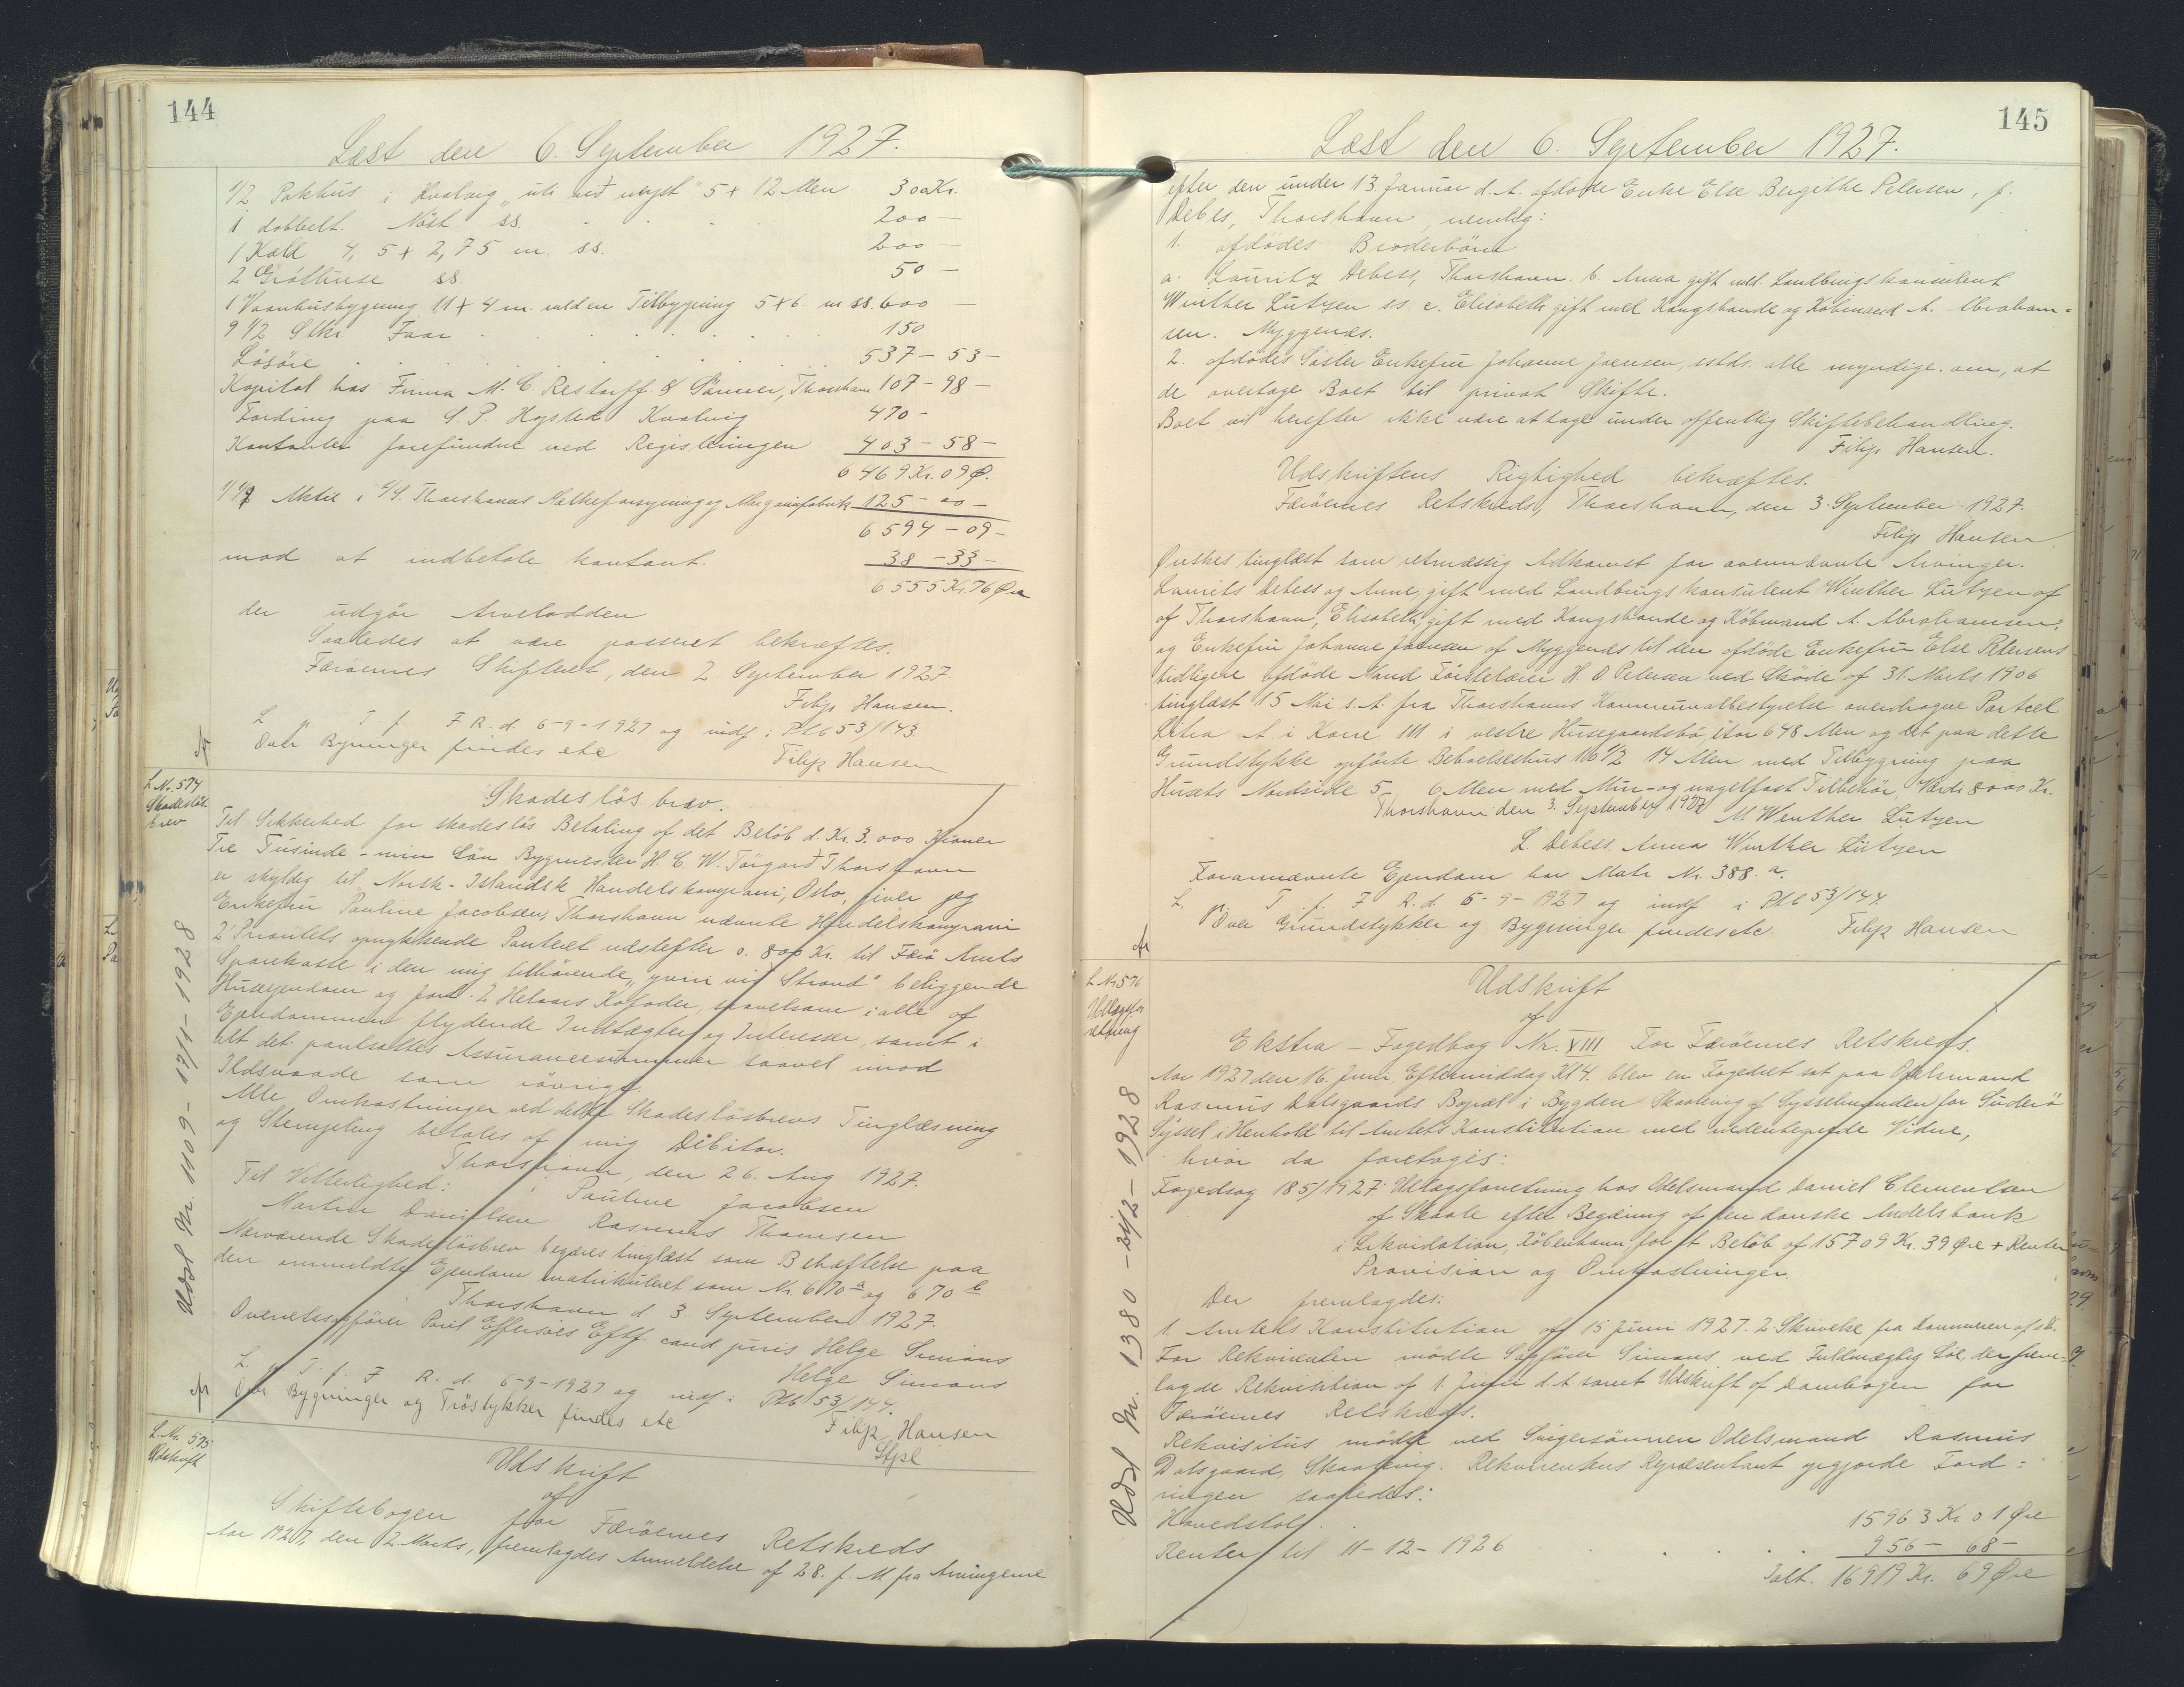 144
Læst den 6. September 1927.
1/2 Pakhus i Kvalvig „uti við neyst" 5 x 12 Alen 300 Kr.
1 dobbelt. Nöst ss. 200 —
1 Kall 4,5 x 2,75 m. ss. 200 —
2 Gróthuse ss. 50 —
1 Vaanhusbygning 11 x 4 m. med en Tilbygning 5 x 6 m ss. 600 —
9 1/2 Stkr. Faar 150
Lösöre 537 - 53 -
Kapital hos Firma M. C. Restorff & Sönner, Thorshavn 107 - 98 -
Fordring paa S. P. Högsted Kvalvig 470 -
Kontanter forefundne ved Registeringen 403 - 58 -
6469 Kr. 09 Ø.
Aktie i A/S. Thorshavns Mælkeforsyning og Margarinefabrik 125 - 00 -
6594 - 09 -
mod at indbetale kontant. 38 - 33 -
6555 Kr. 76 Øre
der udgör Arvelodden
Saaledes at være passeret bekræftes.
Færöernes Skifteret, den 2. September 1927
Filip Hansen.
L. p. T. f. F R. d. 6-9-1927 og indf. i Ptb 53/143.
Over Bygninger findes etc
Filip Hansen
L. Nr. 574
Skadeslös
brev
Skadeslösbrev.
Til Sikkerhed for skadeslös Betaling af det Belöb d. Kr. 3.000 Kroner
Tre Tusinde - min Sön Bygmester H. C. W. Törgarð Thorshavn
er skyldig til Norsk-Islandsk Handelskompani, Oslo, giver jeg
Enkefru Pauline Jacobsen, Thorshavn nævnte Handelskompani
2' Prioritets oprykkende Panteret næstefter o. 800 Kr. til Færö Amts
Sparekasse i den mig tilhörende, „yvir við Strond" beliggende
Husejendom og Jord. 2 Helaars Kofoder, saavelsom i alle af
Ejendommen flydende Indtægter og Interesser, samt i
alt det pantsattes Assurancesummer saavel imod
Ildsvaade som iövrigt.
Alle Omkostninger ved dette Skadeslösbrevs Tinglæsning
og Stempling betales af mig Debitor.
Thorshavn, den 26. Aug 1927.
Til Vitterlighed:
Pauline Jacobsen
Martin Danielsen Rasmus Thomsen
Nærværende Skadeslösbrev begæres tinglæst som Behæftelse paa
den ommeldte Ejendom matrikuleret som Nr. 670 a og 670 b
Thorshavn d. 3 September 1927.
Overretssagförer Poul Effersöes Eftf. cand juris Helge Simons
Helge Simons
L. p. T. f. F R. d. 6-9-1927 og indf. i Ptb 53/144.
Over Bygninger og Tröstykker findes etc
Filip Hansen
Stpl
Udsl Nr. 1109 - 17/1 - 1928
L. Nr. 575
Udskrift
Udskrift
af
Skiftebogen for Færöernes Retskreds
Aar 1927, den 2. Marts, fremlagdes Anmeldelse af 28. f. M fra Arvingerne
145
Læst den 6. September 1927.
efter den under 13. Januar d. A. afdöde Enke Else Bergithe Petersen, f.
Debes, Thorshavn, nemlig:
1. afdödes Broderbörn
a. Lauritz Debess, Thorshavn. b. Anna gift med Landbrugskonsulent
Winther Lützen ss. c. Elisabeth gift med Kongsbonde og Köbmand A. Abraham-
sen. Myggenæs.
2. afdödes Söster Enkefru Johanne Joensen, sstds. alle myndige. om, at
de overtage Boet til privat Skifte.
Boet vil herefter ikke være at tage under offentlig Skiftebehandling.
Filip Hansen.
Udskriftens Rigtighed bekræftes.
Færöernes Retskreds, Thorshavn, den 3. September 1927.
Filip Hansen
Önskes tinglæst som retmæssig Adkomst for ovennævnte Arvinger.
Laurits Debess og Anne, gift med Landbrugskonsulent Winther Lützen af
af Thorshavn, Elisabeth, gift med Kongsbonde og Köbmand A. Abrahamsen,
og Enkefru Johanne Joensen af Myggenæs til den afdöde Enkefru Else Petersens
tidligere afdöde Mand Förstelærer H. O Petersen ved Sköde af 31. Marts 1906
tinglæst 15 Mai s. A. fra Thorshavns Kommunalbestyrelse overdragne Parcel
Litra A. i Karré III i vestre Husegaardsbö, stor 648 Alen og det paa dette
Grundstykke opförte Beboelseshus 16 1/2 14 Alen med Tilbygning paa
Husets Nordside 5 - 6 Alen med Mur- og nagelfast Tilbehör, Værdi 8000 Kr.
Thorshavn den 3. September 1927 M Winther Lützen
L. Debess. Anna Winther Lützen
Forannævnte Ejendom har Matr Nr. 388. a.
L. p. T. f. F R. d. 6-9-1927 og indf i Ptb 53/144
Over Grundstykker og Bygninger findes etc Filip Hansen
L. Nr 576
Udlægsfor
retning
Udskrift
af
Ekstra - Fogedbog Nr. XVIII For Færöernes Retskreds.
Aar 1927 den 16. Juni, Eftermiddag Kl 4. blev en Fogedret sat paa Odelsmand
Rasmus Dalsgaards Bopæl i Bygden Skaalevig af Sysselmanden for Suderö
Syssel i Henhold til Amtets Konstitution med nedentegnede Vidne,
hvor da foretoges:
Fogedsag 185/1927: Udlægsforretning hos Odelsmand Daniel Clementsen
af Skaale efter Begæring af den danske Andelsbank
i Likvidation, Köbenhavn for et Belöb af 15709 Kr. 39 Øre + Renter
Provision og Omkostninger.
Der fremlagdes:
1. Amtets Konstitution af 15 Juni 1927. 2 Skrivelse fra Dommeren af s.D.
For Rekvirenten mödte Sagförer Simons ved Fuldmægtig Löe, der frem-
lagde Rekvisition af 1. Juni d. A samt Udskrift af Dombogen for
Færöernes Retskreds.
Rekvisitus mödte ved Svigersönnen Odelsmand Rasmus
Dalsgaard, Skaalevig. Rekvirentens Repræsentant opgjorde Ford-
ringen saaledes:
Hovedstol 15963 Kr. 01 Øre
Renter til 11-12-1926 956 - 68 -
Ialt. 16919 Kr. 69 Øre